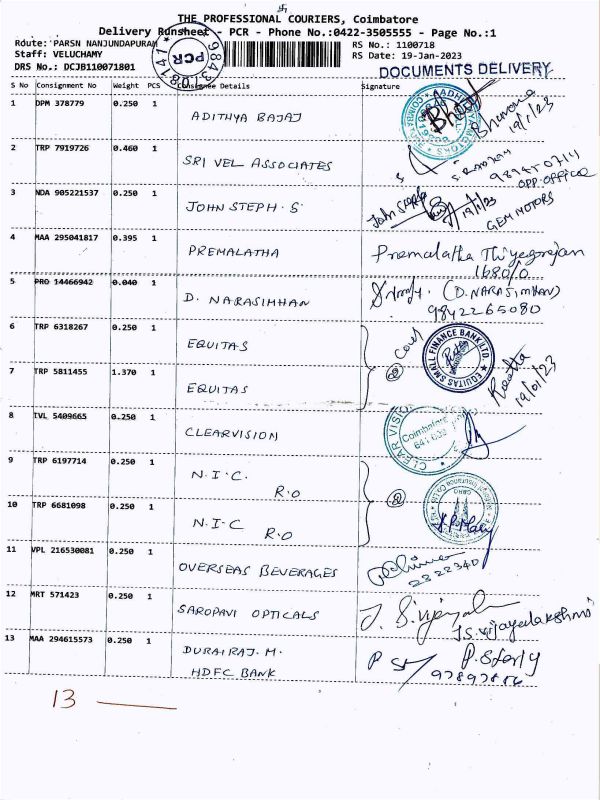 卐
THE PROFESSIONAL COURIERS, Coimbatore
Delivery Runsheet - PCR - Phone No.:0422-3505555 - Page No.:1
Route: PARSN NANJUNDAPURAM
RS No.: 1100718
Staff: VELUCHAMY
RS Date: 19-Jan-2023
DRS No.: DCJB110071801
PCR
DOCUMENTS DELIVERY
S No Consignment No Weight PCS Consignee Details Signature
1 DPM 378779 0.250 1 ADITHYA BAJAJ
Bhavana
19/1/23
2 TRP 7919726 0.460 1 SRI VEL ASSOCIATES
OPP. OFFICE
3 NDA 905221537 0.250 1 JOHN STEPH. S
19/1/23 GEM MOTORS
4 MAA 295041817 0.395 1 PREMALATHA
Premalatha Thiyagarajan
5 PRO 14466942 0.040 1 D. NARASIMHAN
(D. NARASIMHAN)
9842265080
6 TRP 6318267 0.250 1 EQUITAS
EQUITAS SMALL FINANCE BANK LTD.
7 TRP 5811455 1.370 1 EQUITAS
19/01/23
8 IVL 5409665 0.250 1 CLEARVISION
CLEAR VISION
Coimbatore
9 TRP 6197714 0.250 1 N.I.C. R.O
10 TRP 6681098 0.250 1 N.I.C R.O
11 VPL 216530081 0.250 1 OVERSEAS BEVERAGES
2322340
12 MRT 571423 0.250 1 SAROPAVI OPTICALS
J.S. vijayalakshmi
13 MAA 294615573 0.250 1 DURAIRAJ. M.
HDFC BANK
13